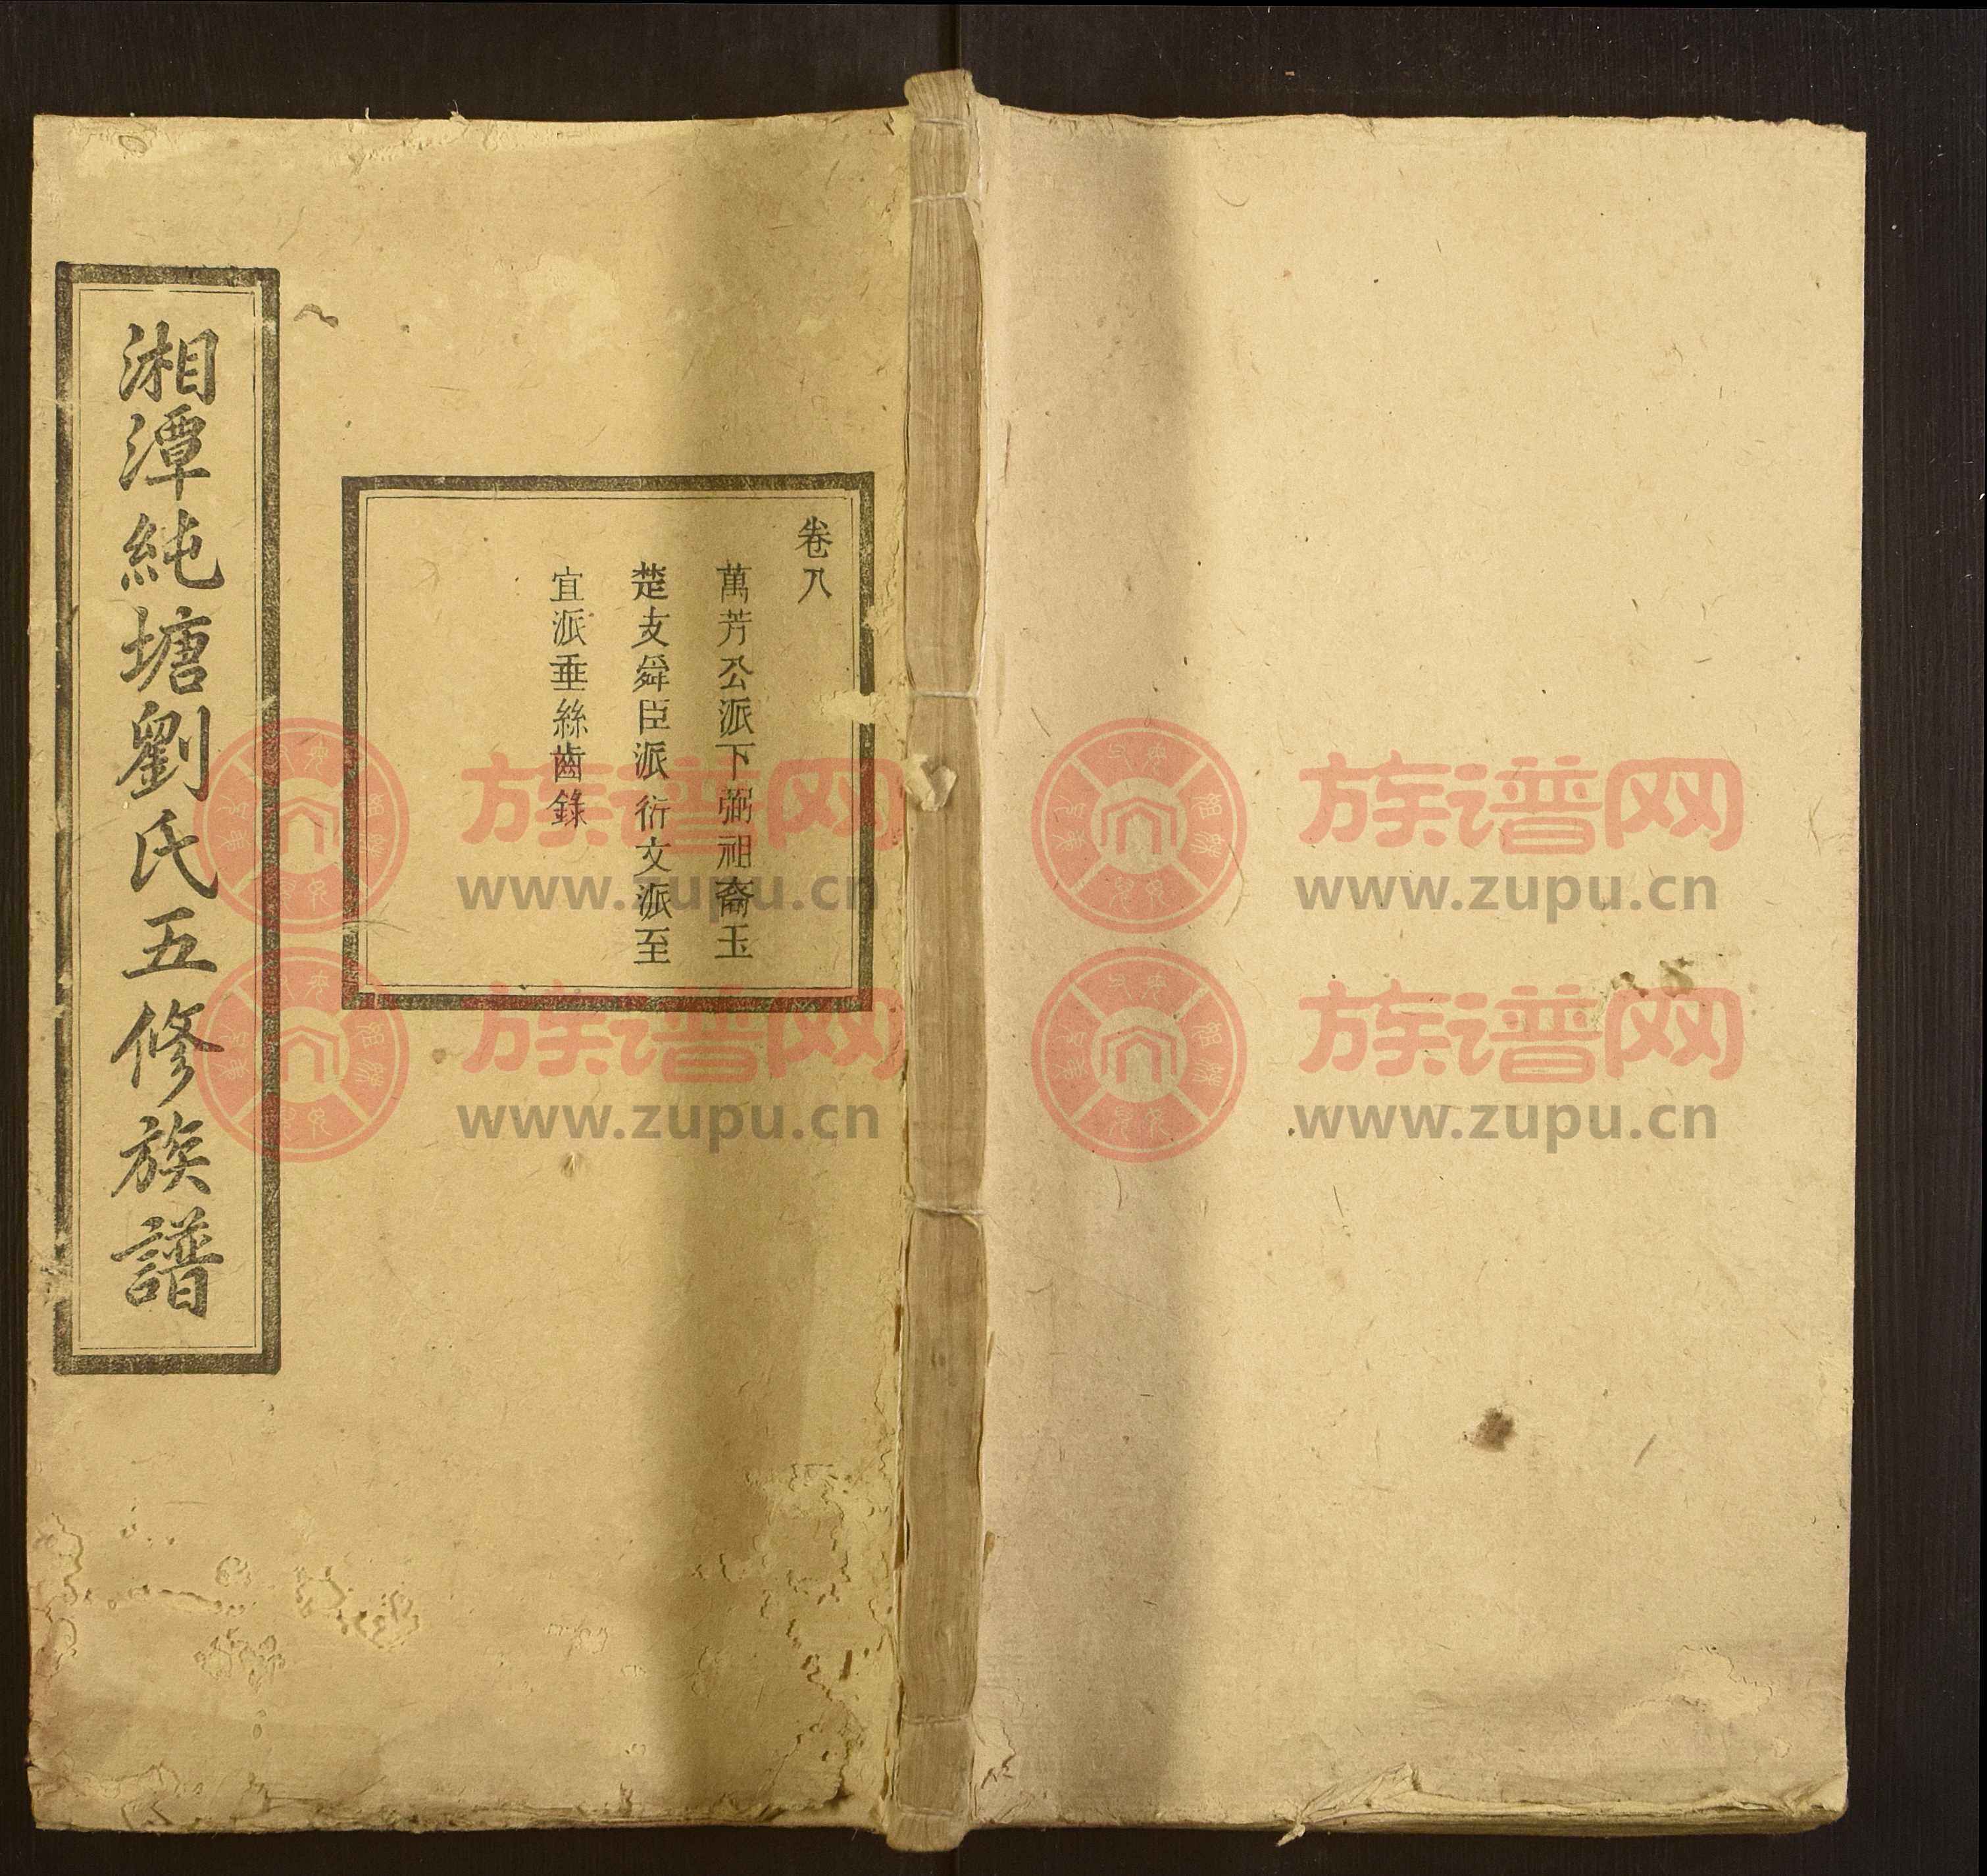 湘潭純塘劉氏五修族譜
卷八
萬芳公派下弼祖裔玉
楚支舜臣派衍文派至
宜派垂絲齒錄
族谱网
www.zupu.cn
族谱网
www.zupu.cn
族谱网
www.zupu.cn
族谱网
www.zupu.cn